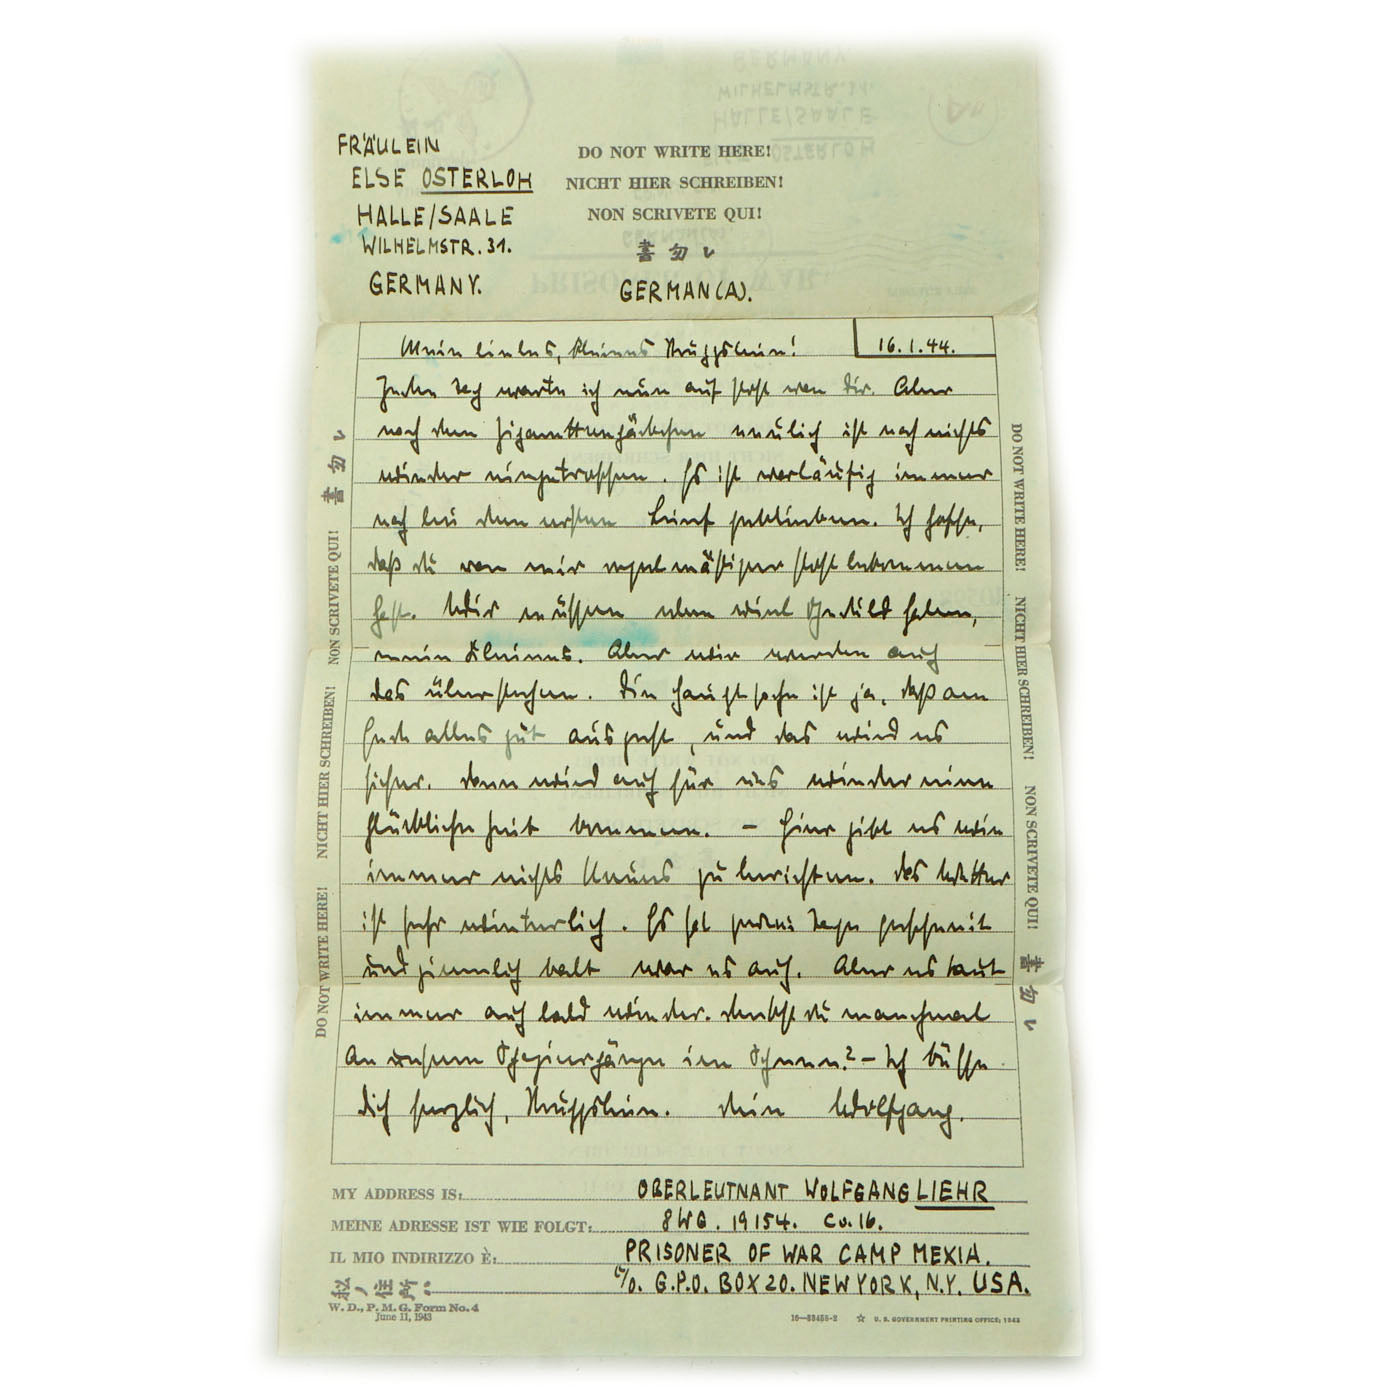 FRÄULEIN
ELSE OSTERLOH
HALLE/SAALE
WILHELMSTR. 31.
GERMANY.
DO NOT WRITE HERE!
NICHT HIER SCHREIBEN!
NON SCRIVETE QUI!
書勿レ
GERMAN(A).
16.1.44.
Mein liebes, kleines
Jeden Tag warte ich nun auf Post von Dir. Aber
nach dem neulich ist noch nichts
wieder eingetroffen. Es ist vorläufig immer
noch bei den ersten fünf geblieben. Ich hoffe,
daß du von mir regelmäßiger Post bekommen
hast. Wir müssen eben viel Geduld haben,
mein Kleines. Aber wir werden auch
das überstehen. Die Hauptsache ist ja, daß am
Ende alles gut ausgeht, und das wird es
sicher. Dann wird auch für uns wieder eine
glückliche Zeit kommen. – Hier gibt es wie
immer nichts Neues zu berichten. Das Wetter
ist sehr winterlich. Es hat Tage geschneit
und ziemlich kalt war es auch. Aber es taut
immer auch bald wieder. Denkst du manchmal
an unsere Spaziergänge im Schnee? – Ich küsse
dich herzlich, Dein Wolfgang.
DO NOT WRITE HERE! NICHT HIER SCHREIBEN! NON SCRIVETE QUI! 書勿レ
DO NOT WRITE HERE! NICHT HIER SCHREIBEN! NON SCRIVETE QUI! 書勿レ
MY ADDRESS IS: OBERLEUTNANT WOLFGANG LIEHR
MEINE ADRESSE IST WIE FOLGT: 8WG. 19154. Co. 16.
IL MIO INDIRIZZO È: PRISONER OF WAR CAMP MEXIA.
c/o. G.P.O. BOX 20. NEW YORK, N.Y. USA.
W. D., P. M. G. Form No. 4
June 11, 1943
☆ U. S. GOVERNMENT PRINTING OFFICE: 1943